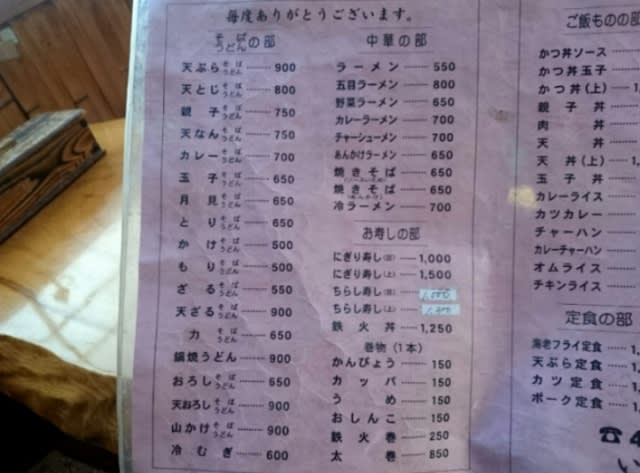 毎度ありがとうございます。
そば うどん の部
天ぷら そば うどん 900
天とじ そば うどん 800
親子 そば うどん 750
天なん そば うどん 750
カレー そば うどん 700
玉子 そば うどん 650
月見 そば うどん 650
とり そば うどん 650
かけ そば うどん 500
もり そば うどん 500
ざる そば うどん 550
天ざる そば うどん 900
力 そば うどん 650
鍋焼うどん 900
おろし そば うどん 650
天おろし そば うどん 900
山かけ そば うどん 900
冷むぎ 600
中華の部
ラーメン 550
五目ラーメン 800
野菜ラーメン 650
カレーラーメン 700
チャーシューメン 700
あんかけラーメン 650
焼きそば 650
焼きそば 650
冷ラーメン 700
お寿しの部
にぎり寿し 1,000
にぎり寿し(上) 1,500
ちらし寿し
ちらし寿し(上)
鉄火丼 1,250
巻物(1本)
かんぴょう 150
カッパ 150
うめ 150
おしんこ 150
鉄火巻 250
太巻 850
ご飯ものの部
かつ丼ソース
かつ丼玉子
かつ丼(上) 1,
親子丼
肉丼
天丼
天丼(上) 1,
玉子丼
カレーライス
カツカレー
チャーハン
カレーチャーハン
オムライス
チキンライス
定食の部
海老フライ定食 1,
天ぷら定食 1,
カツ定食 1,
ポーク定食 1,
☎4